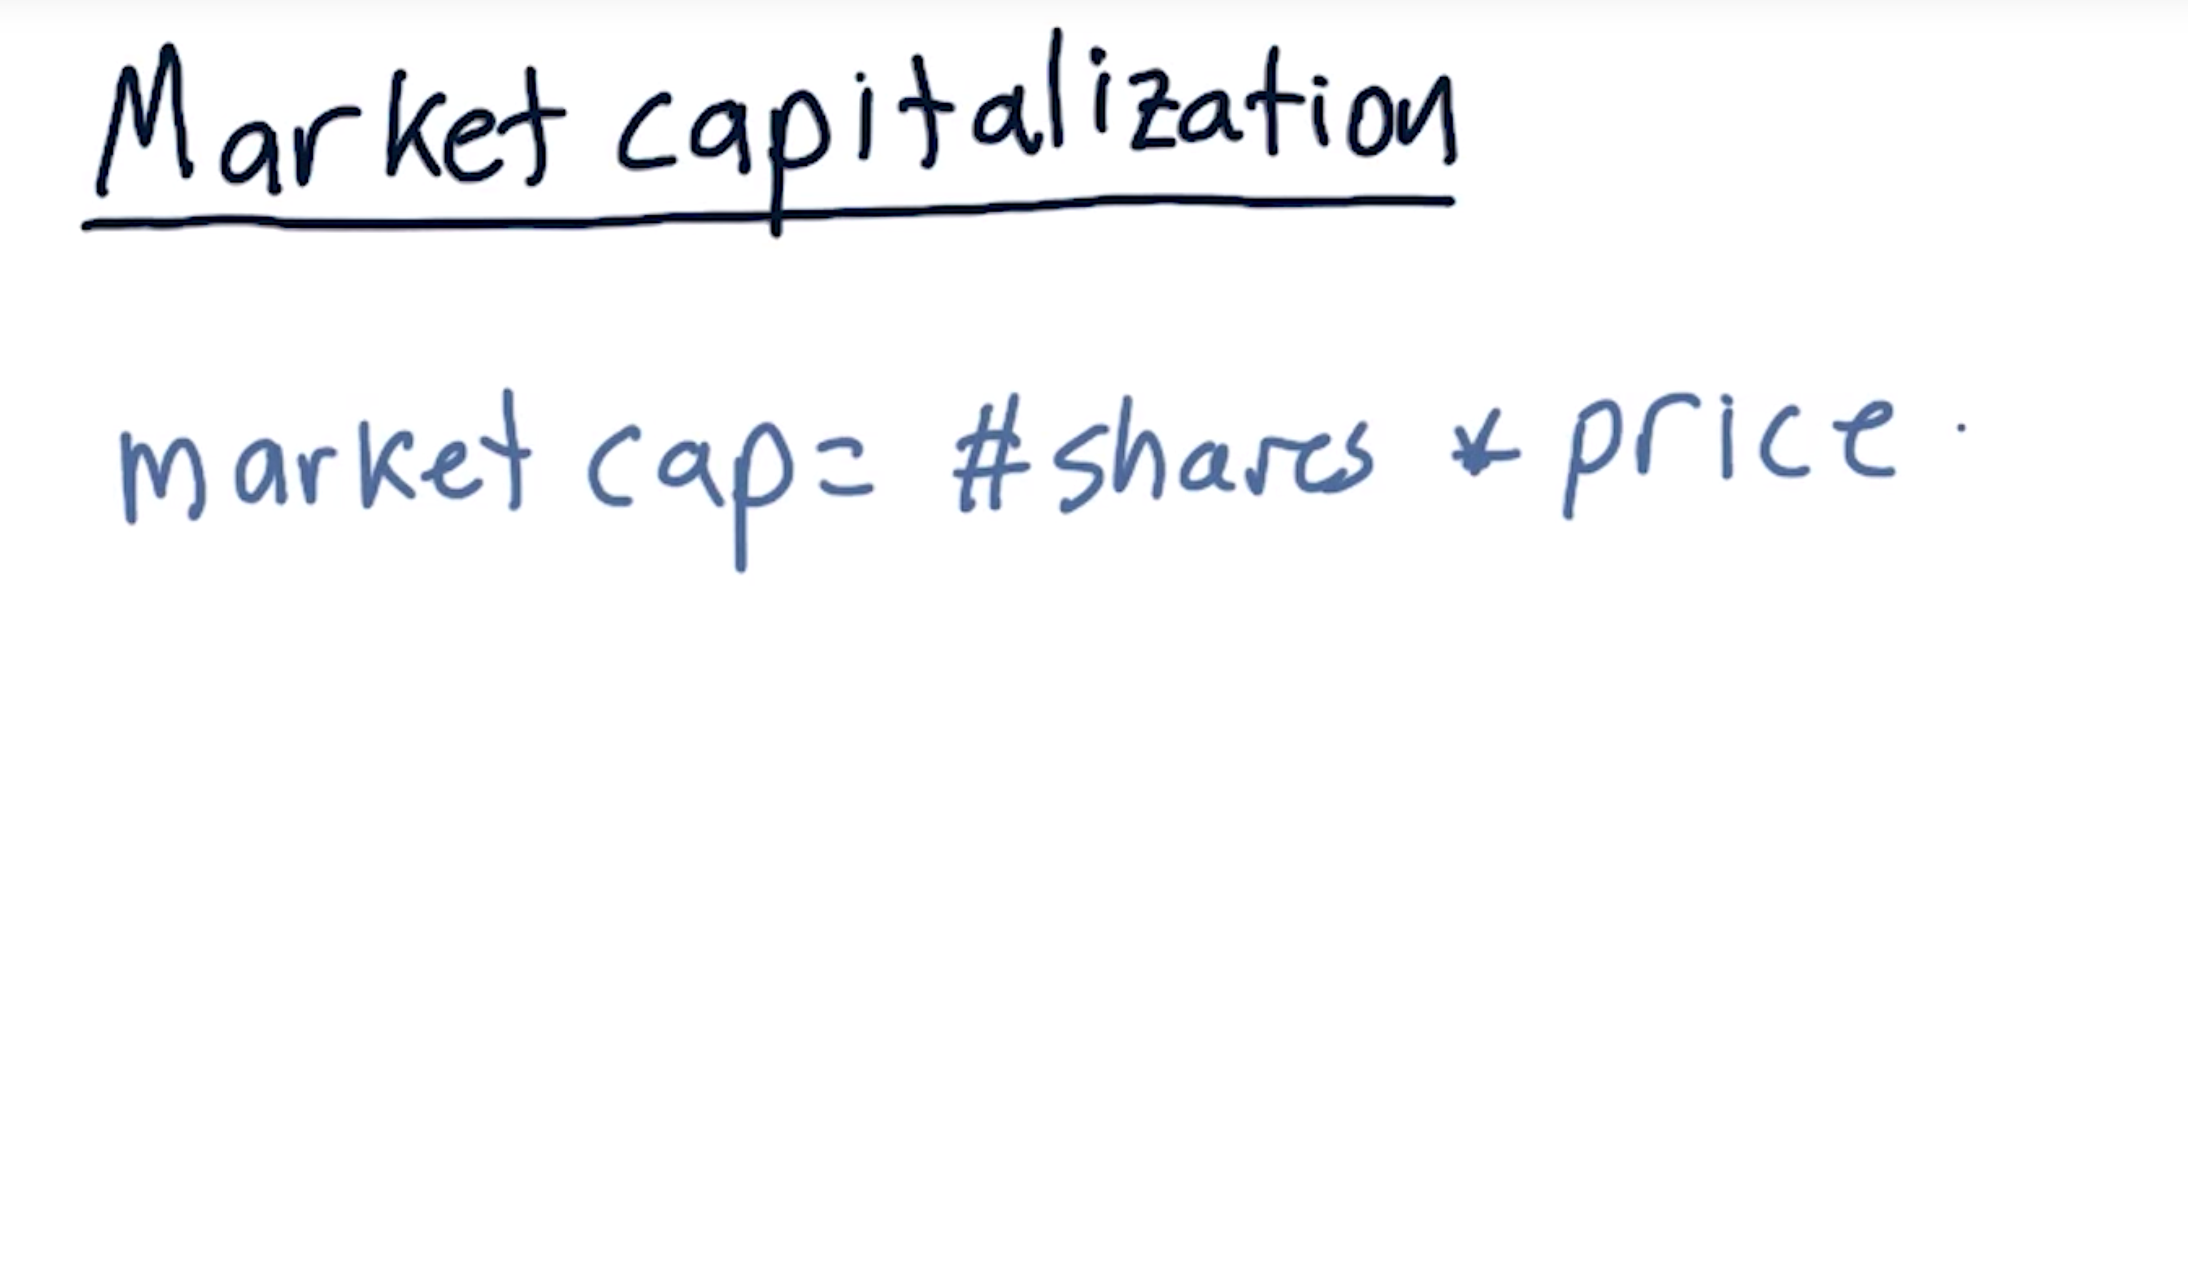 Market capitalization
market cap= #shares * price